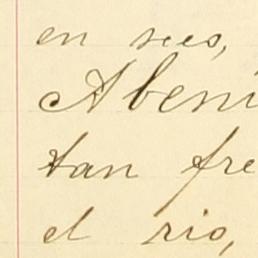 en sus,
Abeni
tan fre
el rio,